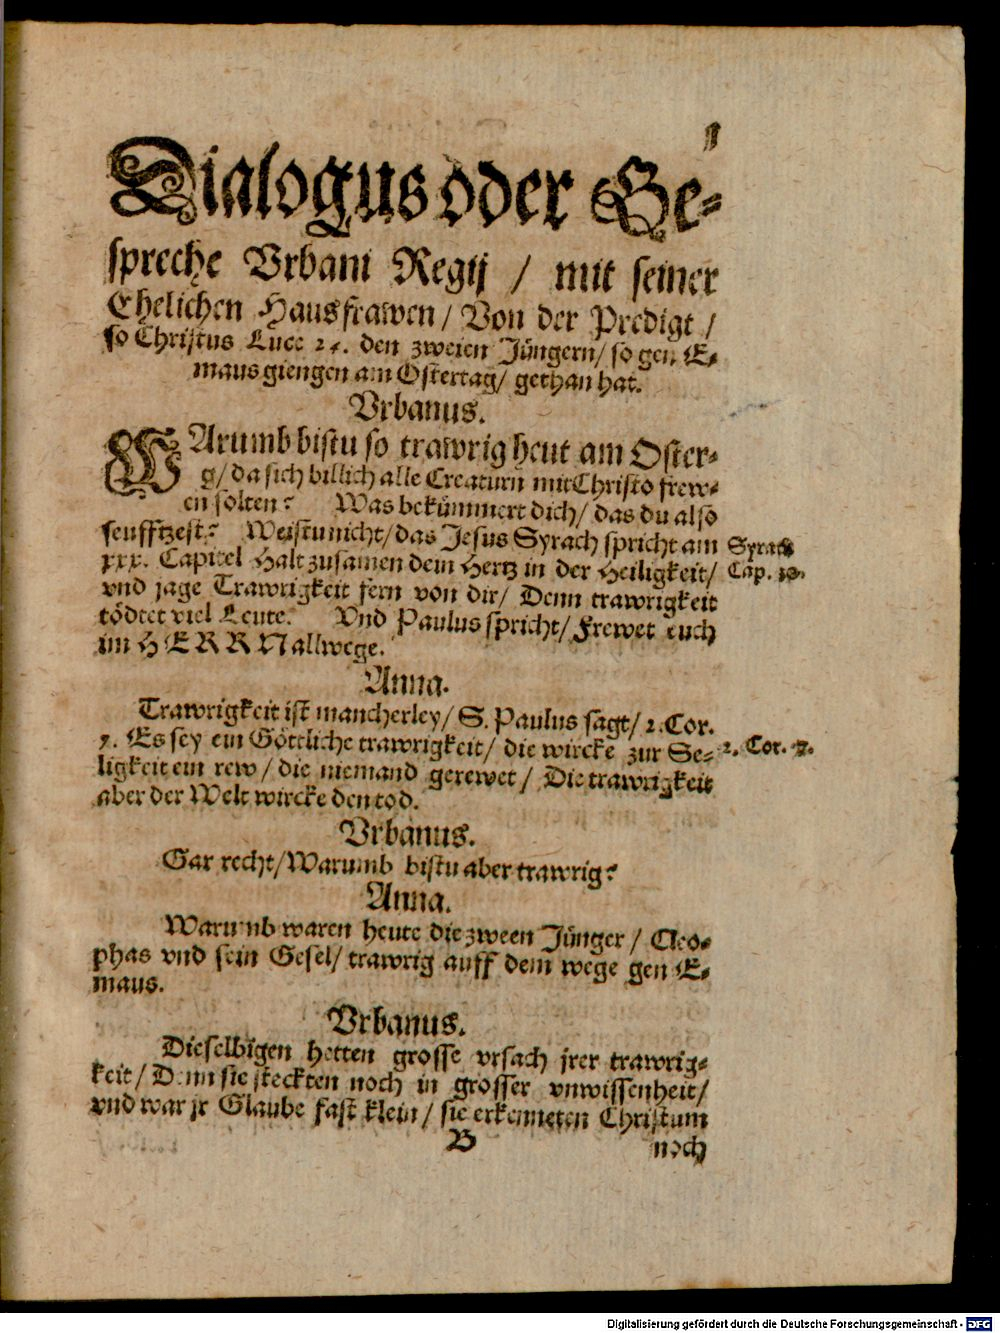 1
Dialogus oder Ge-
spreche Vrbani Regij / mit seiner
Ehelichen Hausfrawen / Von der Predigt /
so Christus Luce 24. den zweien Jüngern / so gen E-
maus giengen am Ostertag / gethan hat.
Vrbanus.
WArumb bistu so trawrig heut am Oster-
g / da sich billich alle Creaturn mit Christo frew-
en solten? Was bekümmert dich / das du also
seufftzest? Weistu nicht / das Jesus Syrach spricht am
xxx. Capitel Halt zusamen dein Hertz in der Heiligkeit /
vnd jage Trawrigkeit fern von dir / Denn trawrigkeit
tödtet viel Leute. Vnd Paulus spricht / Frewet euch
im HERRN allwege.
Syrach
Cap. 30.
Anna.
Trawrigkeit ist mancherley / S. Paulus sagt / 2. Cor.
7. Es sey ein Göttliche trawrigkeit / die wircke zur Se-
ligkeit ein rew / die niemand gerewet / Die trawrigkeit
aber der Welt wircke den tod.
2. Cor. 7.
Vrbanus.
Gar recht / Warumb bistu aber trawrig?
Anna.
Warumb waren heute die zween Jünger / Cleo-
phas vnd sein Gesel / trawrig auff dem wege gen E-
maus.
Vrbanus.
Dieselbigen hetten grosse vrsach jrer trawrig-
keit / Denn sie steckten noch in grosser vnwissenheit /
vnd war jr Glaube fast klein / sie erkenneten Christum
B noch
Digitalisierung gefördert durch die Deutsche Forschungsgemeinschaft - DFG